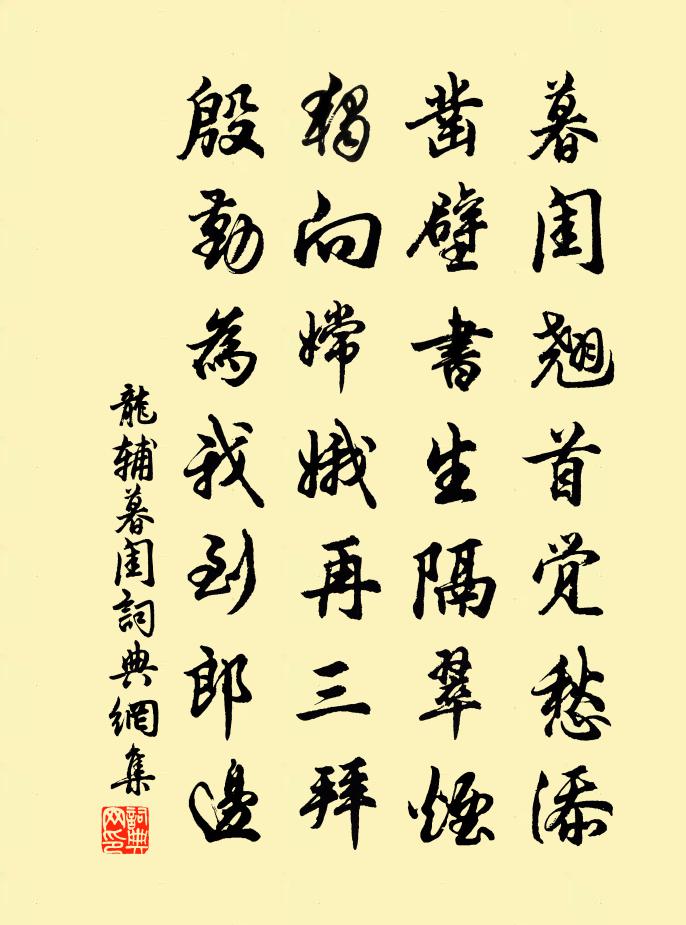 暮闺翘首觉愁添
凿壁書生隔翠煙
獨向嫦娥再三拜
殷勤為我到郎邊
龍辅暮闺詞典網集
詞典网印